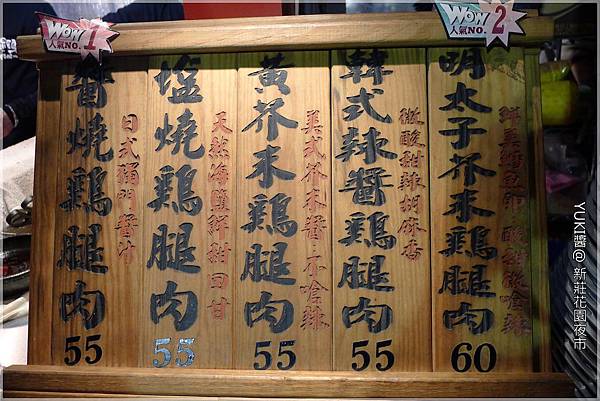 WOW
人氣NO.1
醬燒鷄腿肉
日式獨門醬汁
55
塩燒鷄腿肉
天然海鹽鮮甜回甘
55
黃芥末鷄腿肉
美式芥末醬.不嗆辣
55
韓式辣醬鷄腿肉
微酸甜辣胡麻香
55
WOW
人氣NO.2
明太子芥末鷄腿肉
鮮美鱈魚卵.酸甜微嗆辣
60
YUKI醬@新莊花園夜市